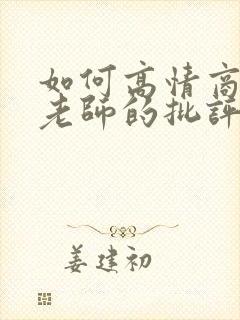 如何高情商
老师的批评
姜建初